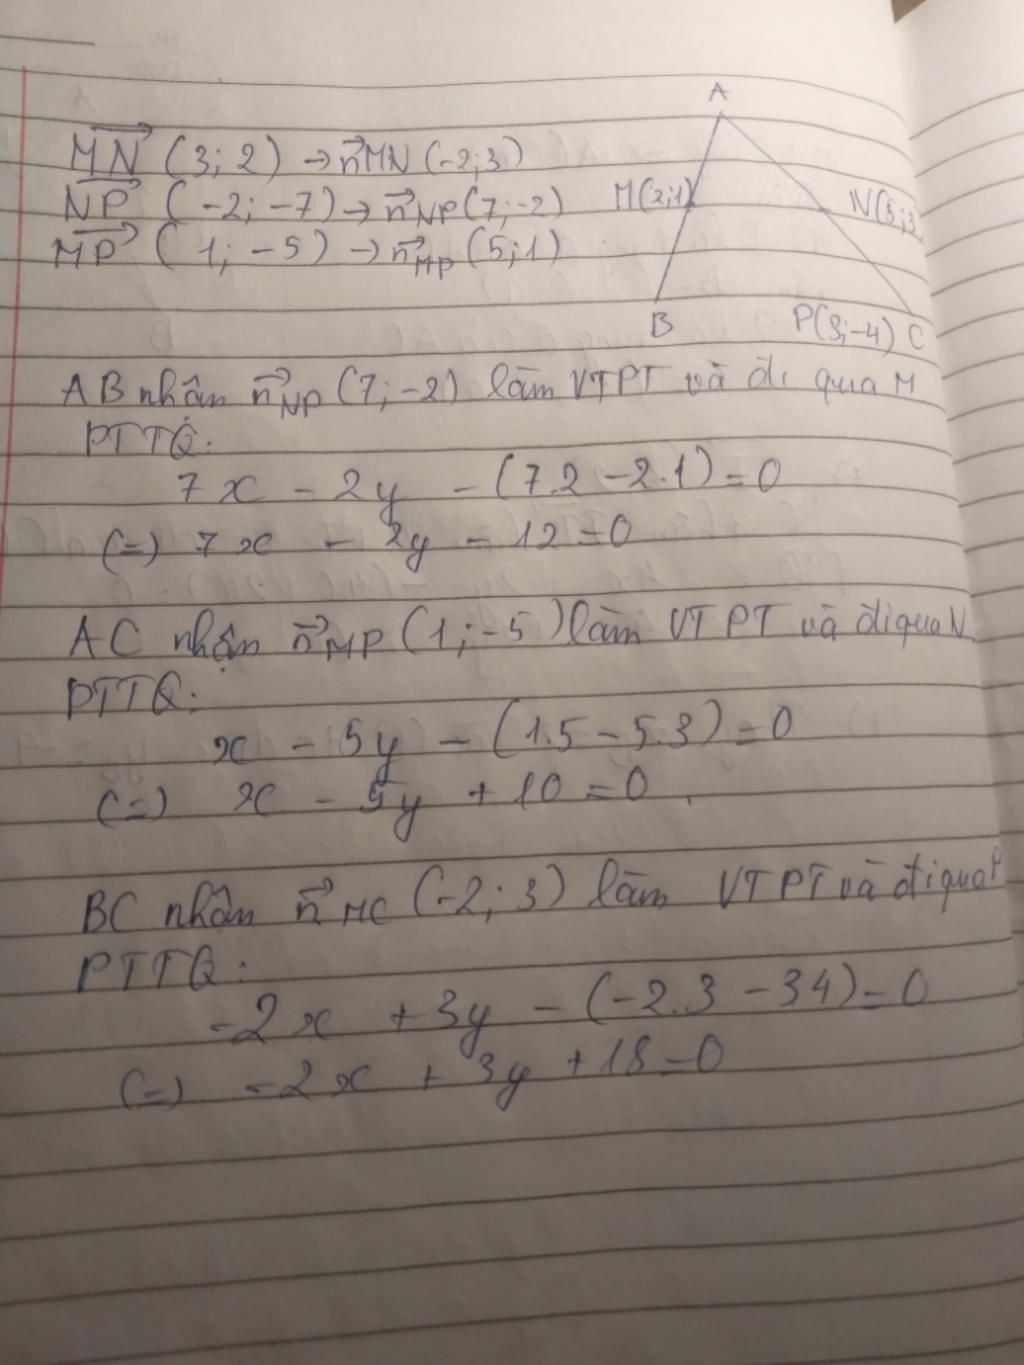 A
MN (3; 2) → n MN (-2; 3)
NP (-2; -7) → n NP (7; -2)
M(2;1)
N(5;3
MP (1; -5) → n MP (5; 1)
B
P(3;-4)
C
AB nhân n NP (7; -2) làm VTPT và đi qua M
PTTQ:
7x - 2y - (7.2 - 2.1) = 0
(=) 7x - 2y - 12 = 0
AC nhận n MP (1; -5) làm VTPT và đi qua N
PTTQ:
x - 5y - (1.5 - 5.3) = 0
(=) x - 5y + 10 = 0
BC nhận n MC (-2; 3) làm VTPT và đi qua P
PTTQ:
-2x + 3y - (-2.3 - 34) = 0
(=) -2x + 3y + 18 = 0